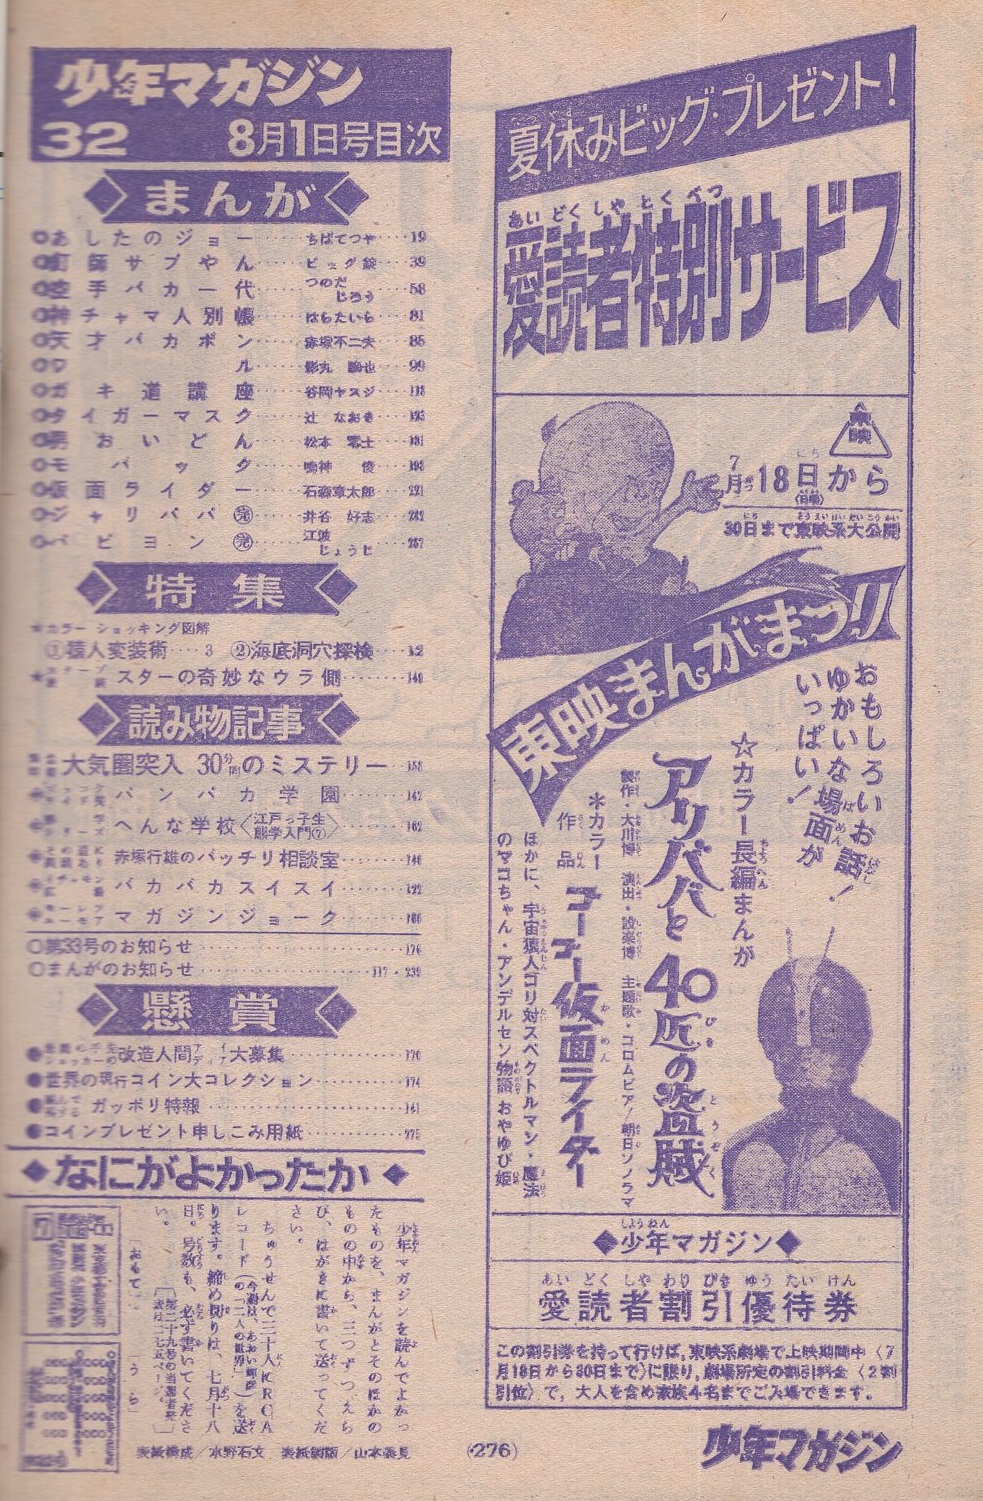 少年マガジン
32 8月1日号目次
まんが
あしたのジョー……ちばてつや……19
釘師サブやん……ビッグ錠……39
空手バカ一代……つのだじろう……58
神チャマ人別帳……はらたいら……81
天才バカボン……赤塚不二夫……85
ワル……影丸 譲也……99
ガキ道講座……谷岡ヤスジ
タイガーマスク……辻 なおき
男おいどん……松本 零士
モバック……鳴神 俊
仮面ライダー……石森章太郎
ジャリパパ(完)……井谷 好志
パピヨン(完)……江波じょうじ
特集
★カラー ショッキング図解
①猿人変装術……3 ②海底洞穴探検
スターの奇妙なウラ側
読み物記事
大気圏突入 30分間のミステリー
パンパカ学園
へんな学校〈江戸っ子生態学入門⑦〉
赤塚行雄のバッチリ相談室
バカバカスイスイ
マガジンジョーク
○第33号のお知らせ……176
○まんがのお知らせ……117・239
懸賞
改造人間アイディア大募集
●世界の現行コイン大コレクション……174
ガッポリ特報
●コインプレゼント申しこみ用紙……275
◆なにがよかったか◆
少年マガジンを読んでよかっ
たものを、まんがとそのほかの
ものの中から、三つずつ、えら
び、はがきに書いて送ってくだ
さい。
ちゅうせんで三十人にRCA
レコード
を送
ります。締め切りは、七月十八
日。号数も、必ず書いてくださ
い。
〔第二十九号の当選者発表は二七五ページ。〕
(おもて)
(うら)
表紙構成/水野石文 表紙製版/山本義見
(276)
夏休みビッグ・プレゼント!
愛読者特別サービス
あいどくしゃとくべつ
東映
7月18日から
(日曜)
30日まで東映系大公開
東映まんがまつり
おもしろいお話!
ゆかいな場面が
いっぱい!
☆カラー長編まんが
アリババと40匹の盗賊
製作・大川博 演出・設楽博 主題歌・コロムビア/朝日ソノラマ
*カラー作品
ゴーゴー仮面ライダー
ほかに、宇宙猿人ゴリ対スペクトルマン・魔法
のマコちゃん・アンデルセン物語 おやゆび姫
◆少年マガジン◆
しょうねん
愛読者割引優待券
あいどくしゃわりびきゆうたいけん
この割引券を持って行けば、東映系劇場で上映期間中〈7
月18日から30日まで〉に限り、劇場所定の割引料金〈2割
引位〉で、大人を含め家族4名までご入場できます。
少年マガジン